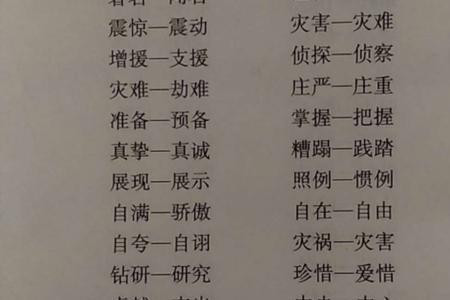 震惊—震动 灾害—灾难
增援—支援 侦探—侦察
灾难—劫难 庄严—庄重
准备—预备 掌握—把握
真挚—真诚 糟蹋—践踏
展现—展示 照例—惯例
自满—骄傲 自在—自由
自夸—自诩 灾祸—灾害
钻研—研究 珍惜—爱惜